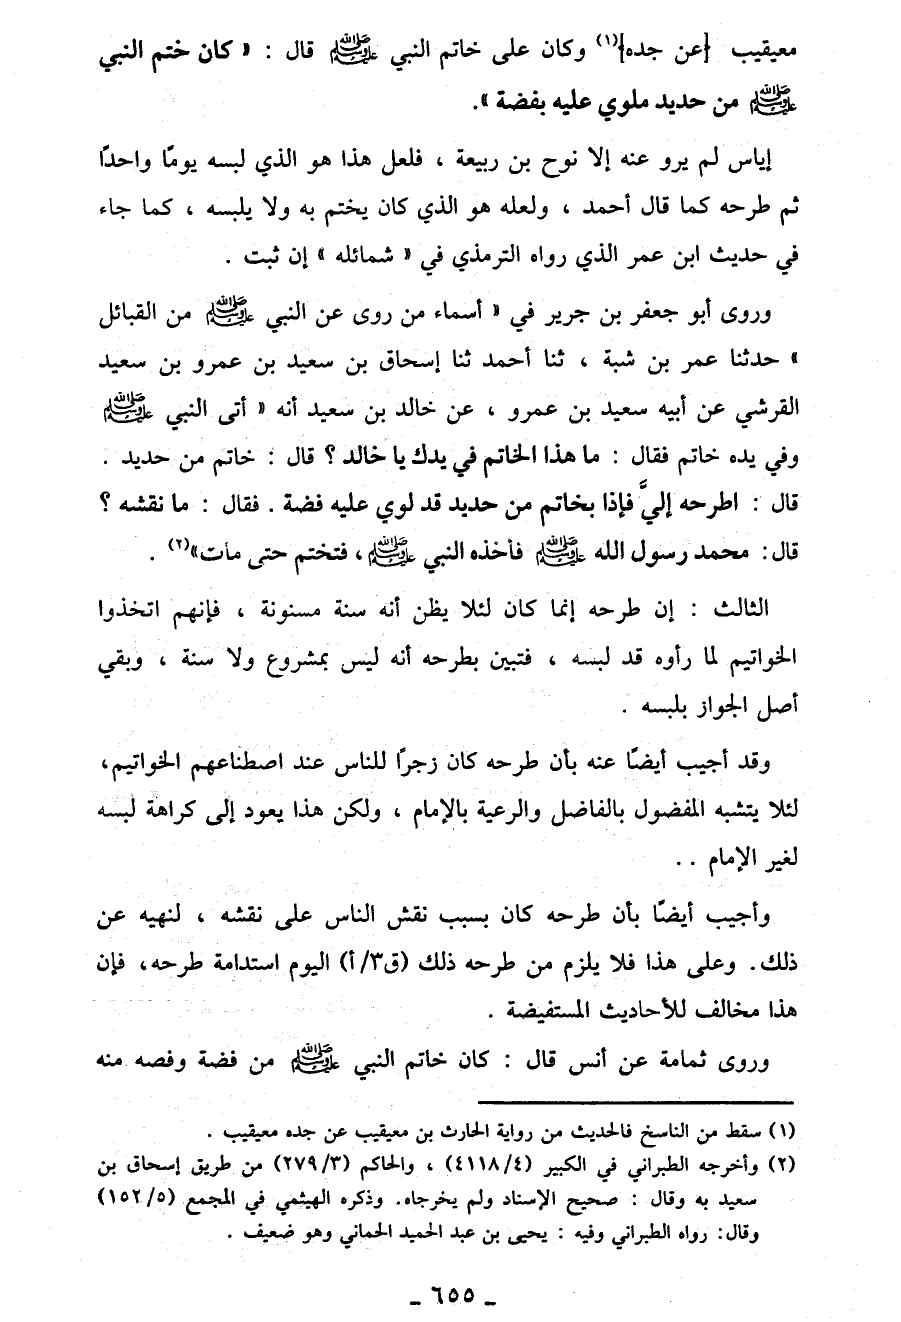 معيقيب {عن جده}(١) وكان على خاتم النبي ﷺ قال : « كان ختم النبي
ﷺ من حديد ملوي عليه بفضة ».
إياس لم يرو عنه إلا نوح بن ربيعة ، فلعل هذا هو الذي لبسه يومًا واحدًا
ثم طرحه كما قال أحمد ، ولعله هو الذي كان يختم به ولا يلبسه ، كما جاء
في حديث ابن عمر الذي رواه الترمذي في « شمائله » إن ثبت .
وروى أبو جعفر بن جرير في « أسماء من روى عن النبي ﷺ من القبائل
» حدثنا عمر بن شبة ، ثنا أحمد ثنا إسحاق بن سعيد بن عمرو بن سعيد
القرشي عن أبيه سعيد بن عمرو ، عن خالد بن سعيد أنه « أتى النبي ﷺ
وفي يده خاتم فقال : ما هذا الخاتم في يدك يا خالد ؟ قال : خاتم من حديد .
قال : اطرحه إليَّ فإذا بخاتم من حديد قد لوي عليه فضة . فقال : ما نقشه ؟
قال: محمد رسول الله ﷺ فأخذه النبي ﷺ ، فتختم حتى مات»(٢) .
الثالث : إن طرحه إنما كان لئلا يظن أنه سنة مسنونة ، فإنهم اتخذوا
الخواتيم لما رأوه قد لبسه ، فتبين بطرحه أنه ليس بمشروع ولا سنة ، وبقي
أصل الجواز بلبسه .
وقد أجيب أيضًا عنه بأن طرحه كان زجرًا للناس عند اصطناعهم الخواتيم،
لئلا يتشبه المفضول بالفاضل والرعية بالإمام ، ولكن هذا يعود إلى كراهة لبسه
لغير الإمام . .
وأجيب أيضًا بأن طرحه كان بسبب نقش الناس على نقشه ، لنهيه عن
ذلك. وعلى هذا فلا يلزم من طرحه ذلك (ق٣/أ) اليوم استدامة طرحه، فإن
هذا مخالف للأحاديث المستفيضة .
وروى ثمامة عن أنس قال : كان خاتم النبي ﷺ من فضة وفصه منه
(١) سقط من الناسخ فالحديث من رواية الحارث بن معيقيب عن جده معيقيب .
(٢) وأخرجه الطبراني في الكبير (٤/ ٤١١٨) ، والحاكم (٣/ ٢٧٩) من طريق إسحاق بن
سعيد به وقال : صحيح الإسناد ولم يخرجاه. وذكره الهيثمي في المجمع (٥/ ١٥٢)
وقال: رواه الطبراني وفيه : يحيى بن عبد الحميد الحماني وهو ضعيف .
_ ٦٥٥ _